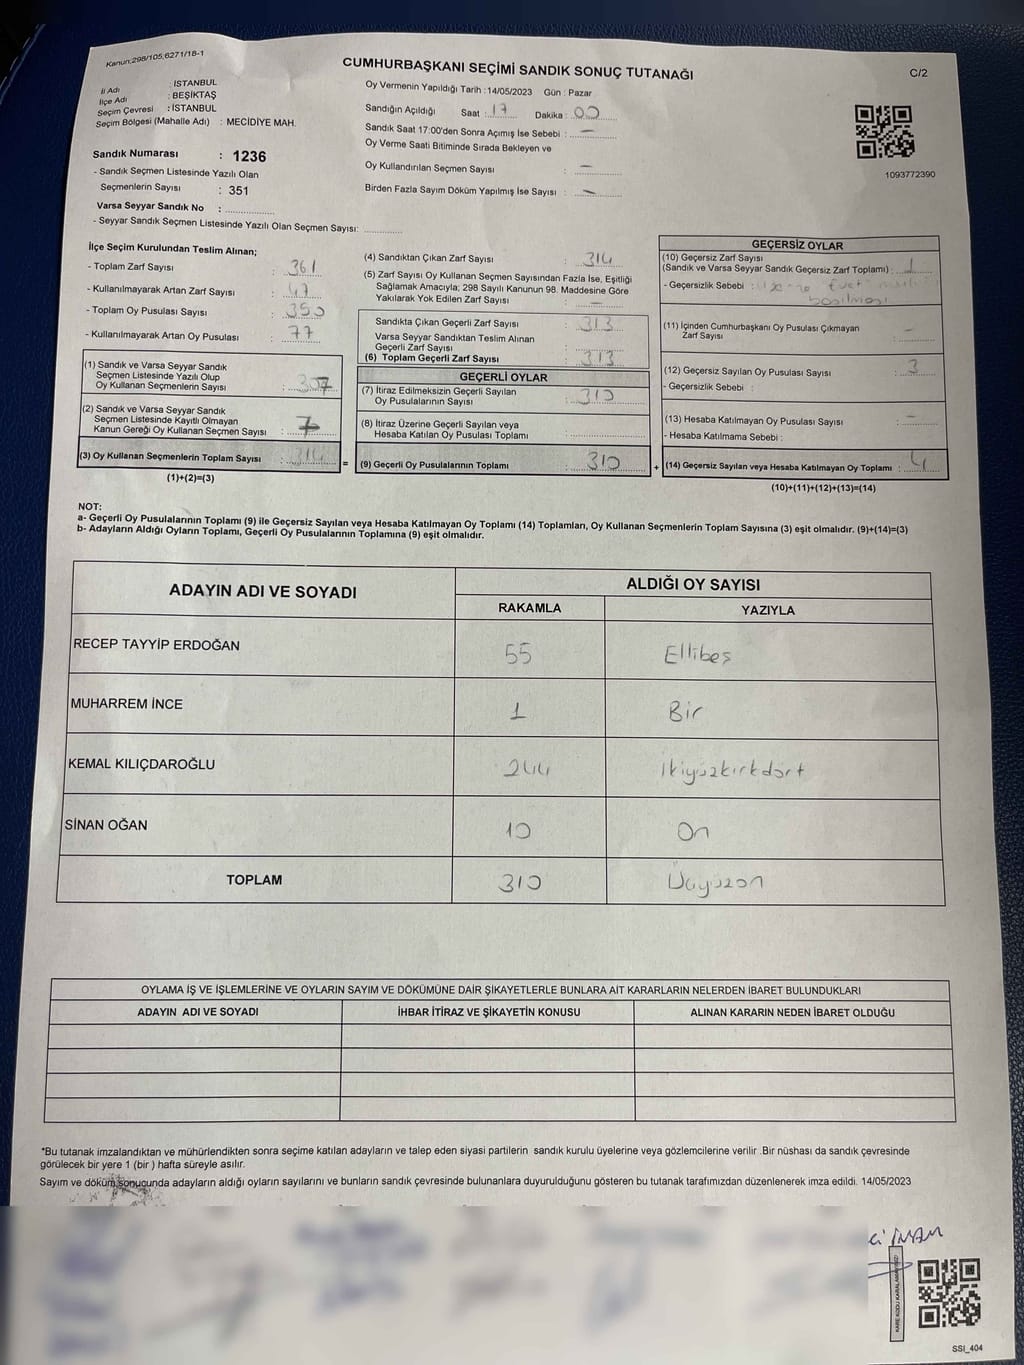 Kanun:298/105;6271/18-1
CUMHURBAŞKANI SEÇİMİ SANDIK SONUÇ TUTANAĞI
C/2
İl Adı : İSTANBUL
İlçe Adı : BEŞİKTAŞ
Seçim Çevresi : İSTANBUL
Seçim Bölgesi (Mahalle Adı) : MECİDİYE MAH.
Sandık Numarası : 1236
- Sandık Seçmen Listesinde Yazılı Olan
Seçmenlerin Sayısı : 351
Varsa Seyyar Sandık No :
- Seyyar Sandık Seçmen Listesinde Yazılı Olan Seçmen Sayısı:
Oy Vermenin Yapıldığı Tarih :14/05/2023 Gün : Pazar
Sandığın Açıldığı Saat : 17 Dakika : 00
Sandık Saat 17:00'den Sonra Açımış İse Sebebi : —
Oy Verme Saati Bitiminde Sırada Bekleyen ve
Oy Kullandırılan Seçmen Sayısı : —
Birden Fazla Sayım Döküm Yapılmış İse Sayısı : —
1093772390
İlçe Seçim Kurulundan Teslim Alınan;
- Toplam Zarf Sayısı : 361
- Kullanılmayarak Artan Zarf Sayısı : 47
- Toplam Oy Pusulası Sayısı :
- Kullanılmayarak Artan Oy Pusulası : 77
(1) Sandık ve Varsa Seyyar Sandık
Seçmen Listesinde Yazılı Olup
Oy Kullanan Seçmenlerin Sayısı : 307
(2) Sandık ve Varsa Seyyar Sandık
Seçmen Listesinde Kayıtlı Olmayan
Kanun Gereği Oy Kullanan Seçmen Sayısı : 7
(3) Oy Kullanan Seçmenlerin Toplam Sayısı : 314
(1)+(2)=(3)
(4) Sandıktan Çıkan Zarf Sayısı : 314
(5) Zarf Sayısı Oy Kullanan Seçmen Sayısından Fazla İse, Eşitliği
Sağlamak Amacıyla; 298 Sayılı Kanunun 98. Maddesine Göre
Yakılarak Yok Edilen Zarf Sayısı : —
Sandıkta Çıkan Geçerli Zarf Sayısı : 313
Varsa Seyyar Sandıktan Teslim Alınan
Geçerli Zarf Sayısı :
(6) Toplam Geçerli Zarf Sayısı : 313
GEÇERLİ OYLAR
(7) İtiraz Edilmeksizin Geçerli Sayılan
Oy Pusulalarının Sayısı : 310
(8) İtiraz Üzerine Geçerli Sayılan veya
Hesaba Katılan Oy Pusulası Toplamı :
= (9) Geçerli Oy Pusulalarının Toplamı : 310
GEÇERSİZ OYLAR
(10) Geçersiz Zarf Sayısı
(Sandık ve Varsa Seyyar Sandık Geçersiz Zarf Toplamı) : 1
- Geçersizlik Sebebi :
basılması
(11) İçinden Cumhurbaşkanı Oy Pusulası Çıkmayan
Zarf Sayısı : —
(12) Geçersiz Sayılan Oy Pusulası Sayısı : 3
- Geçersizlik Sebebi :
(13) Hesaba Katılmayan Oy Pusulası Sayısı : —
- Hesaba Katılmama Sebebi :
+ (14) Geçersiz Sayılan veya Hesaba Katılmayan Oy Toplamı : 4
(10)+(11)+(12)+(13)=(14)
NOT:
a- Geçerli Oy Pusulalarının Toplamı (9) ile Geçersiz Sayılan veya Hesaba Katılmayan Oy Toplamı (14) Toplamları, Oy Kullanan Seçmenlerin Toplam Sayısına (3) eşit olmalıdır. (9)+(14)=(3)
b- Adayların Aldığı Oyların Toplamı, Geçerli Oy Pusulalarının Toplamına (9) eşit olmalıdır.
ADAYIN ADI VE SOYADI ALDIĞI OY SAYISI
RAKAMLA YAZIYLA
RECEP TAYYİP ERDOĞAN 55 Ellibeş
MUHARREM İNCE 1 Bir
KEMAL KILIÇDAROĞLU 244 İkiyüzkırkdört
SİNAN OĞAN 10 On
TOPLAM 310 Üçyüzon
OYLAMA İŞ VE İŞLEMLERİNE VE OYLARIN SAYIM VE DÖKÜMÜNE DAİR ŞİKAYETLERLE BUNLARA AİT KARARLARIN NELERDEN İBARET BULUNDUKLARI
ADAYIN ADI VE SOYADI İHBAR İTİRAZ VE ŞİKAYETİN KONUSU ALINAN KARARIN NEDEN İBARET OLDUĞU
*Bu tutanak imzalandıktan ve mühürlendikten sonra seçime katılan adayların ve talep eden siyasi partilerin sandık kurulu üyelerine veya gözlemcilerine verilir .Bir nüshası da sandık çevresinde
görülecek bir yere 1 (bir ) hafta süreyle asılır.
Sayım ve döküm sonucunda adayların aldığı oyların sayılarını ve bunların sandık çevresinde bulunanlara duyurulduğunu gösteren bu tutanak tarafımızdan düzenlenerek imza edildi. 14/05/2023
KARE KODU KARALAMAYINIZ!
SSI_404